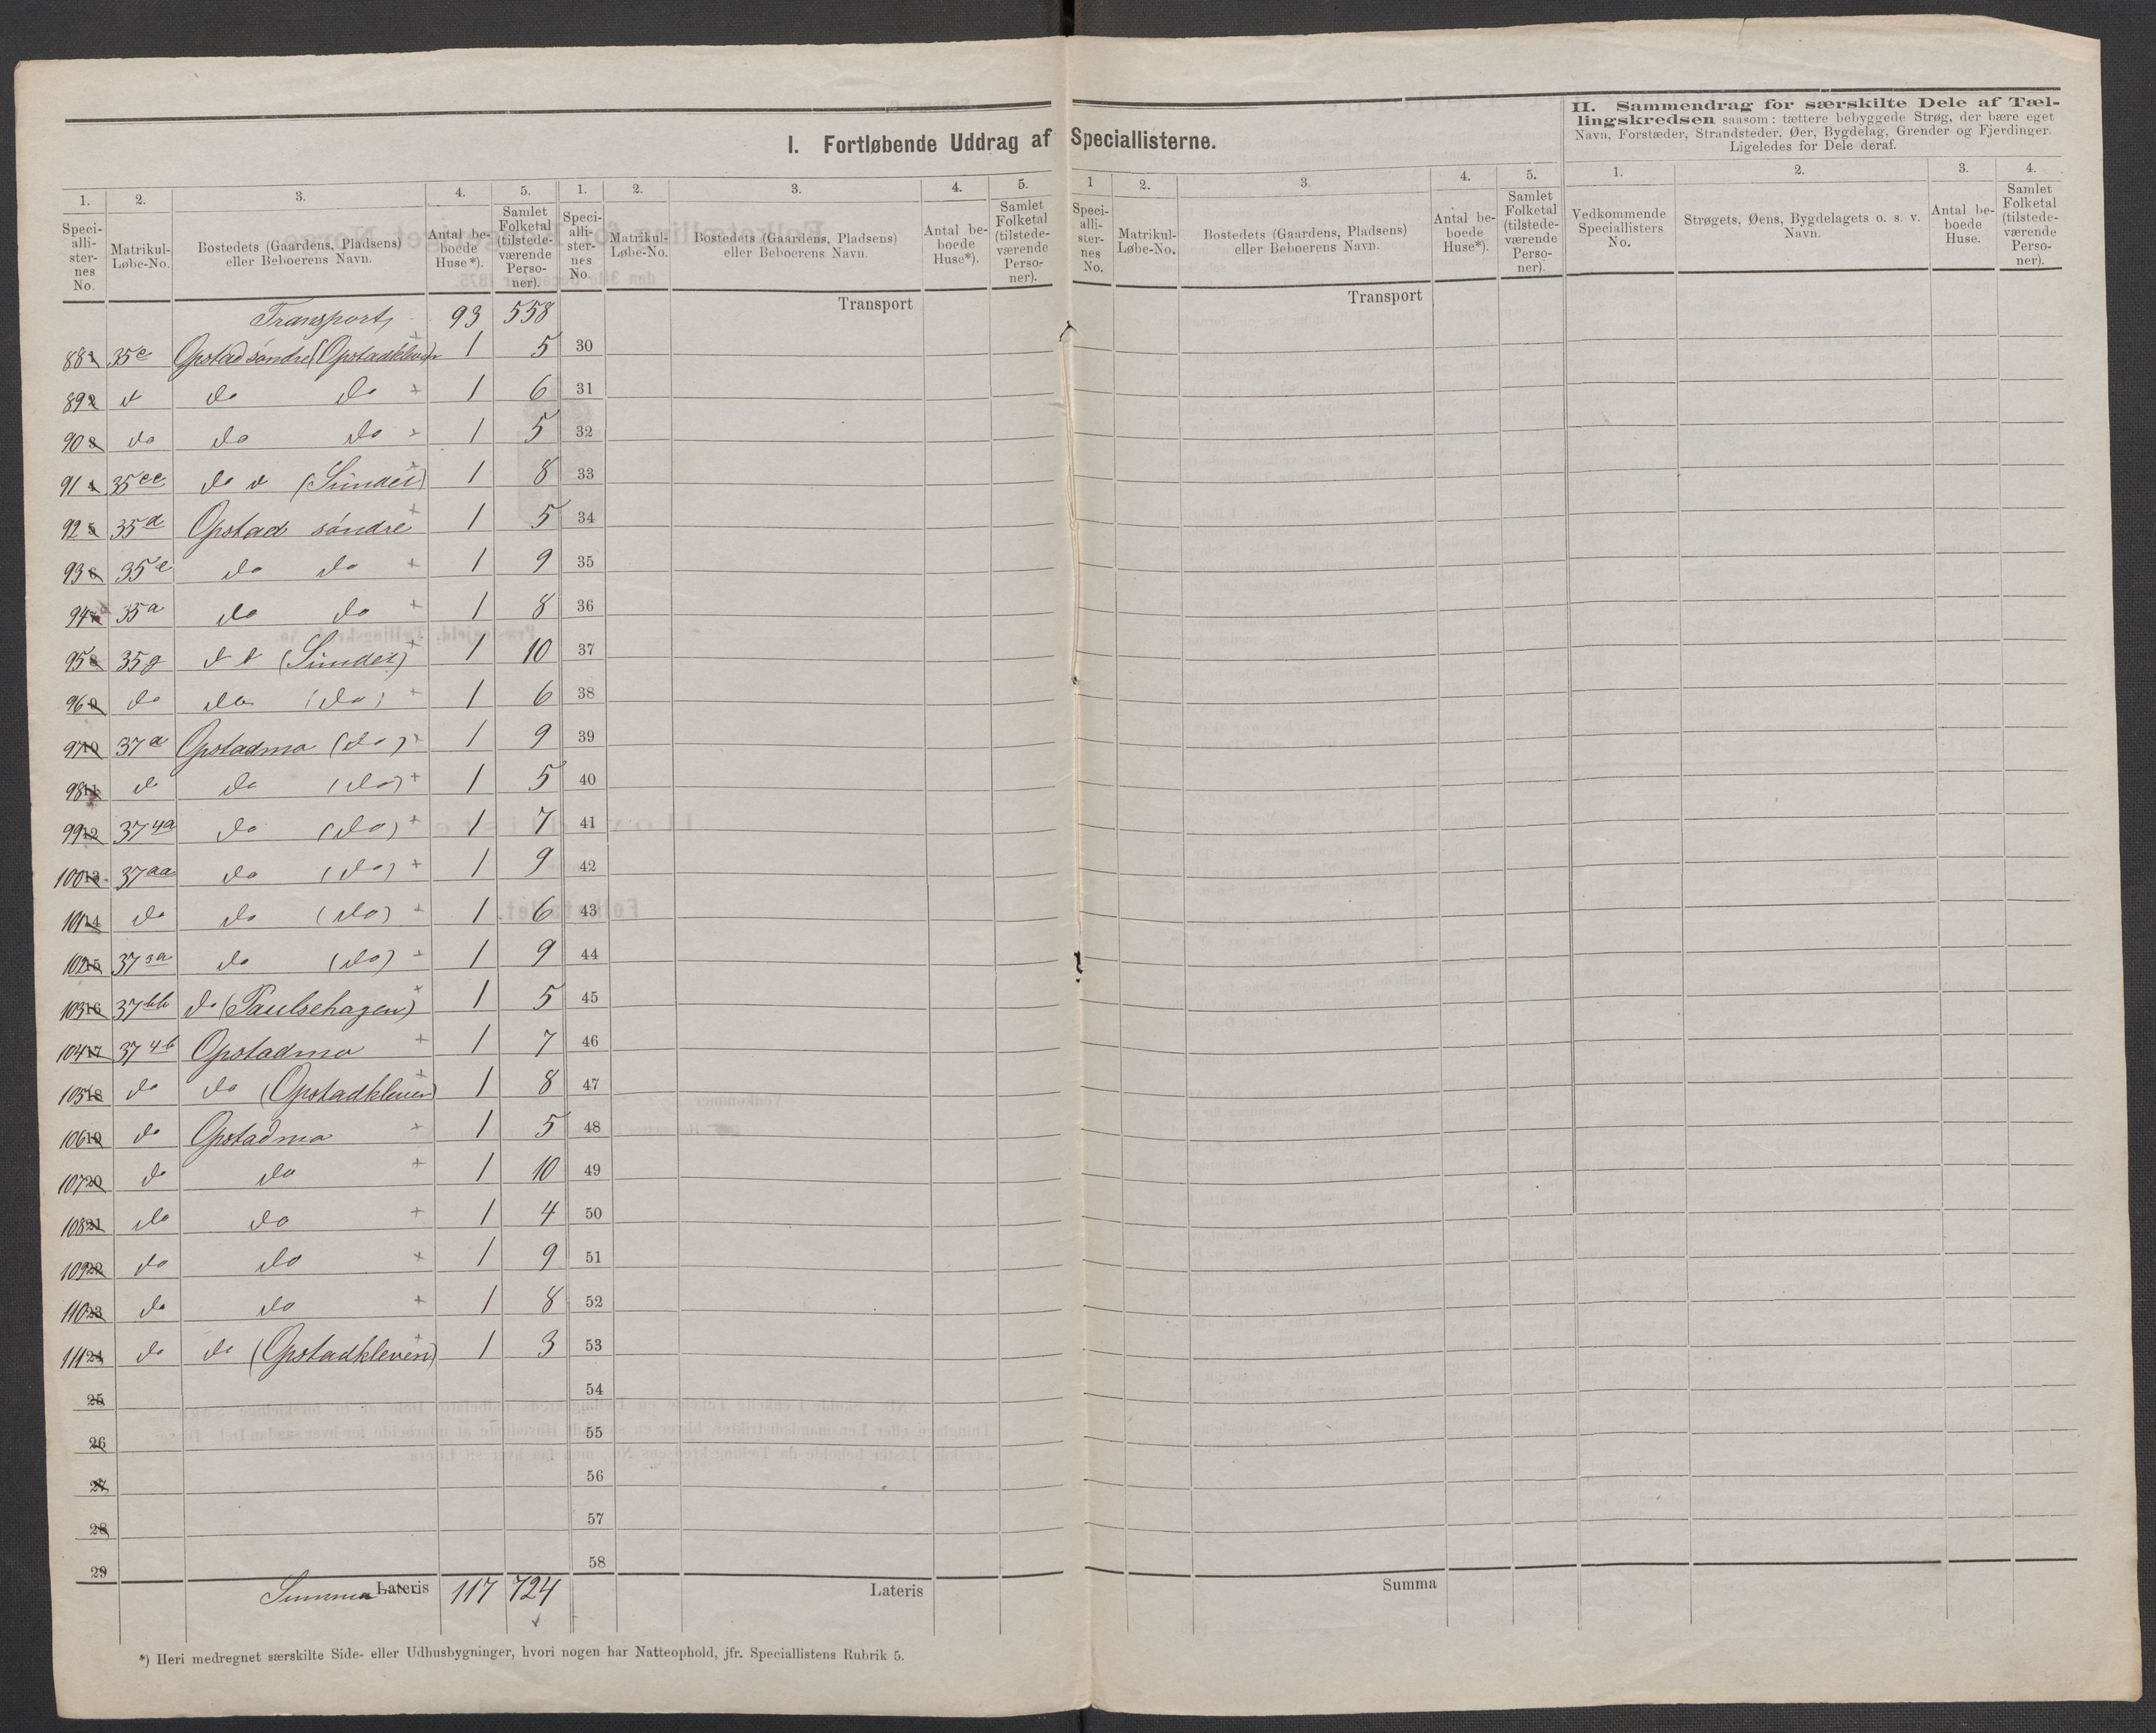 I. Fortløbende Uddrag af Speciallisterne.
II. Sammendrag for særskilte Dele af Tæl-
lingskredsen saasom: tættere bebyggede Strøg, der bære eget
Navn, Forstæder, Strandsteder, Øer, Bygdelag, Grender og Fjerdinger.
Ligeledes for Dele deraf.
1. 2. 3. 4. 5. 1. 2. 3. 4. 5. 1 2. 3. 4. 5. 1. 2. 3. 4.
Speci-
alli-
ster-
nes
No.
Matrikul-
Løbe-No.
Bostedets (Gaardens, Pladsens)
eller Beboerens Navn.
Antal be-
boede
Huse*).
Samlet
Folketal
(tilstede-
værende
Perso-
ner).
Speci-
alli-
ster-
nes
No.
Matrikul-
Løbe-No.
Bostedets (Gaardens, Pladsens)
eller Beboerens Navn.
Antal be-
boede
Huse*).
Samlet
Folketal
(tilstede-
værende
Perso-
ner).
Speci-
alli-
ster-
nes
No.
Matrikul-
Løbe-No.
Bostedets (Gaardens, Pladsens)
eller Beboerens Navn.
Antal be-
boede
Huse*).
Samlet
Folketal
(tilstede-
værende
Perso-
ner).
Vedkommende
Speciallisters
No.
Strøgets, Øens, Bygdelagets o. s. v.
Navn.
Antal be-
boede
Huse.
Samlet
Folketal
(tilstede-
værende
Perso-
ner).
Transport 93 558 Transport Transport
88 1 35c Opstad søndre (Opstadkleven) + 1 5 30
89 2 d do do + 1 6 31
90 3 do do do + 1 5 32
91 4 35cc do d (Sundet) + 1 8 33
92 5 35d Opstad søndre + 1 5 34
93 6 35e do do + 1 9 35
94 7 35a do do + 1 8 36
95 8 35g d d (Sundet) + 1 10 37
96 9 do do (do) + 1 6 38
97 10 37a Opstadmo (do) + 1 9 39
98 11 do do (do) + 1 5 40
99 12 37 4a do (do) + 1 7 41
100 13 37aa do (do) + 1 9 42
101 14 do do (do) + 1 6 43
102 15 37 3a do (do) + 1 9 44
103 16 37bb do (Paulsehagen) + 1 5 45
104 17 37 4b Opstadmo + 1 7 46
105 18 do do (Opstadkleven) + 1 8 47
106 19 do Opstadmo + 1 5 48
107 20 do do + 1 10 49
108 21 do do + 1 4 50
109 22 do do + 1 9 51
110 23 do do + 1 8 52
111 24 do do (Opstadkleven) + 1 3 53
25 54
26 55
27 56
28 57
29 58
Summa Lateris 117 724 Lateris Summa
*) Heri medregnet særskilte Side- eller Udhusbygninger, hvori nogen har Natteophold, jfr. Speciallistens Rubrik 5.